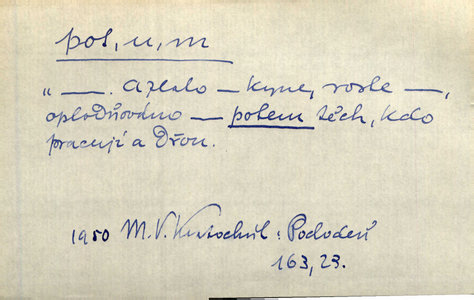 pot, u, m
„ —. A zlato — kyne, roste —,
oplodňováno — potem těch, kdo
pracují a dřou.
1950 M. V. Kratochvíl: Podobeň
163, 23.